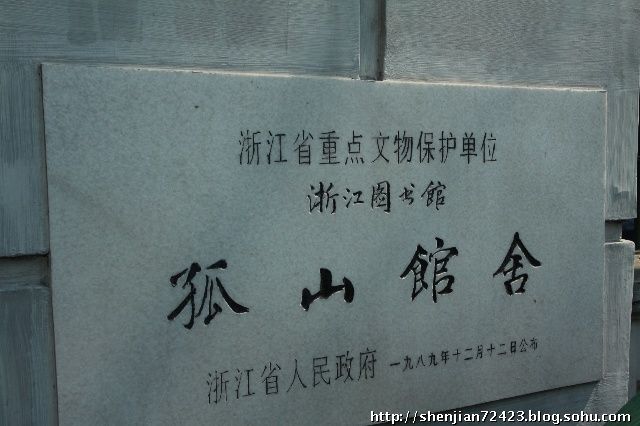 浙江省重点文物保护单位
浙江图书館
孤山館舍
浙江省人民政府 一九八九年十二月十二日公布
http://shenjian72423.blog.sohu.com